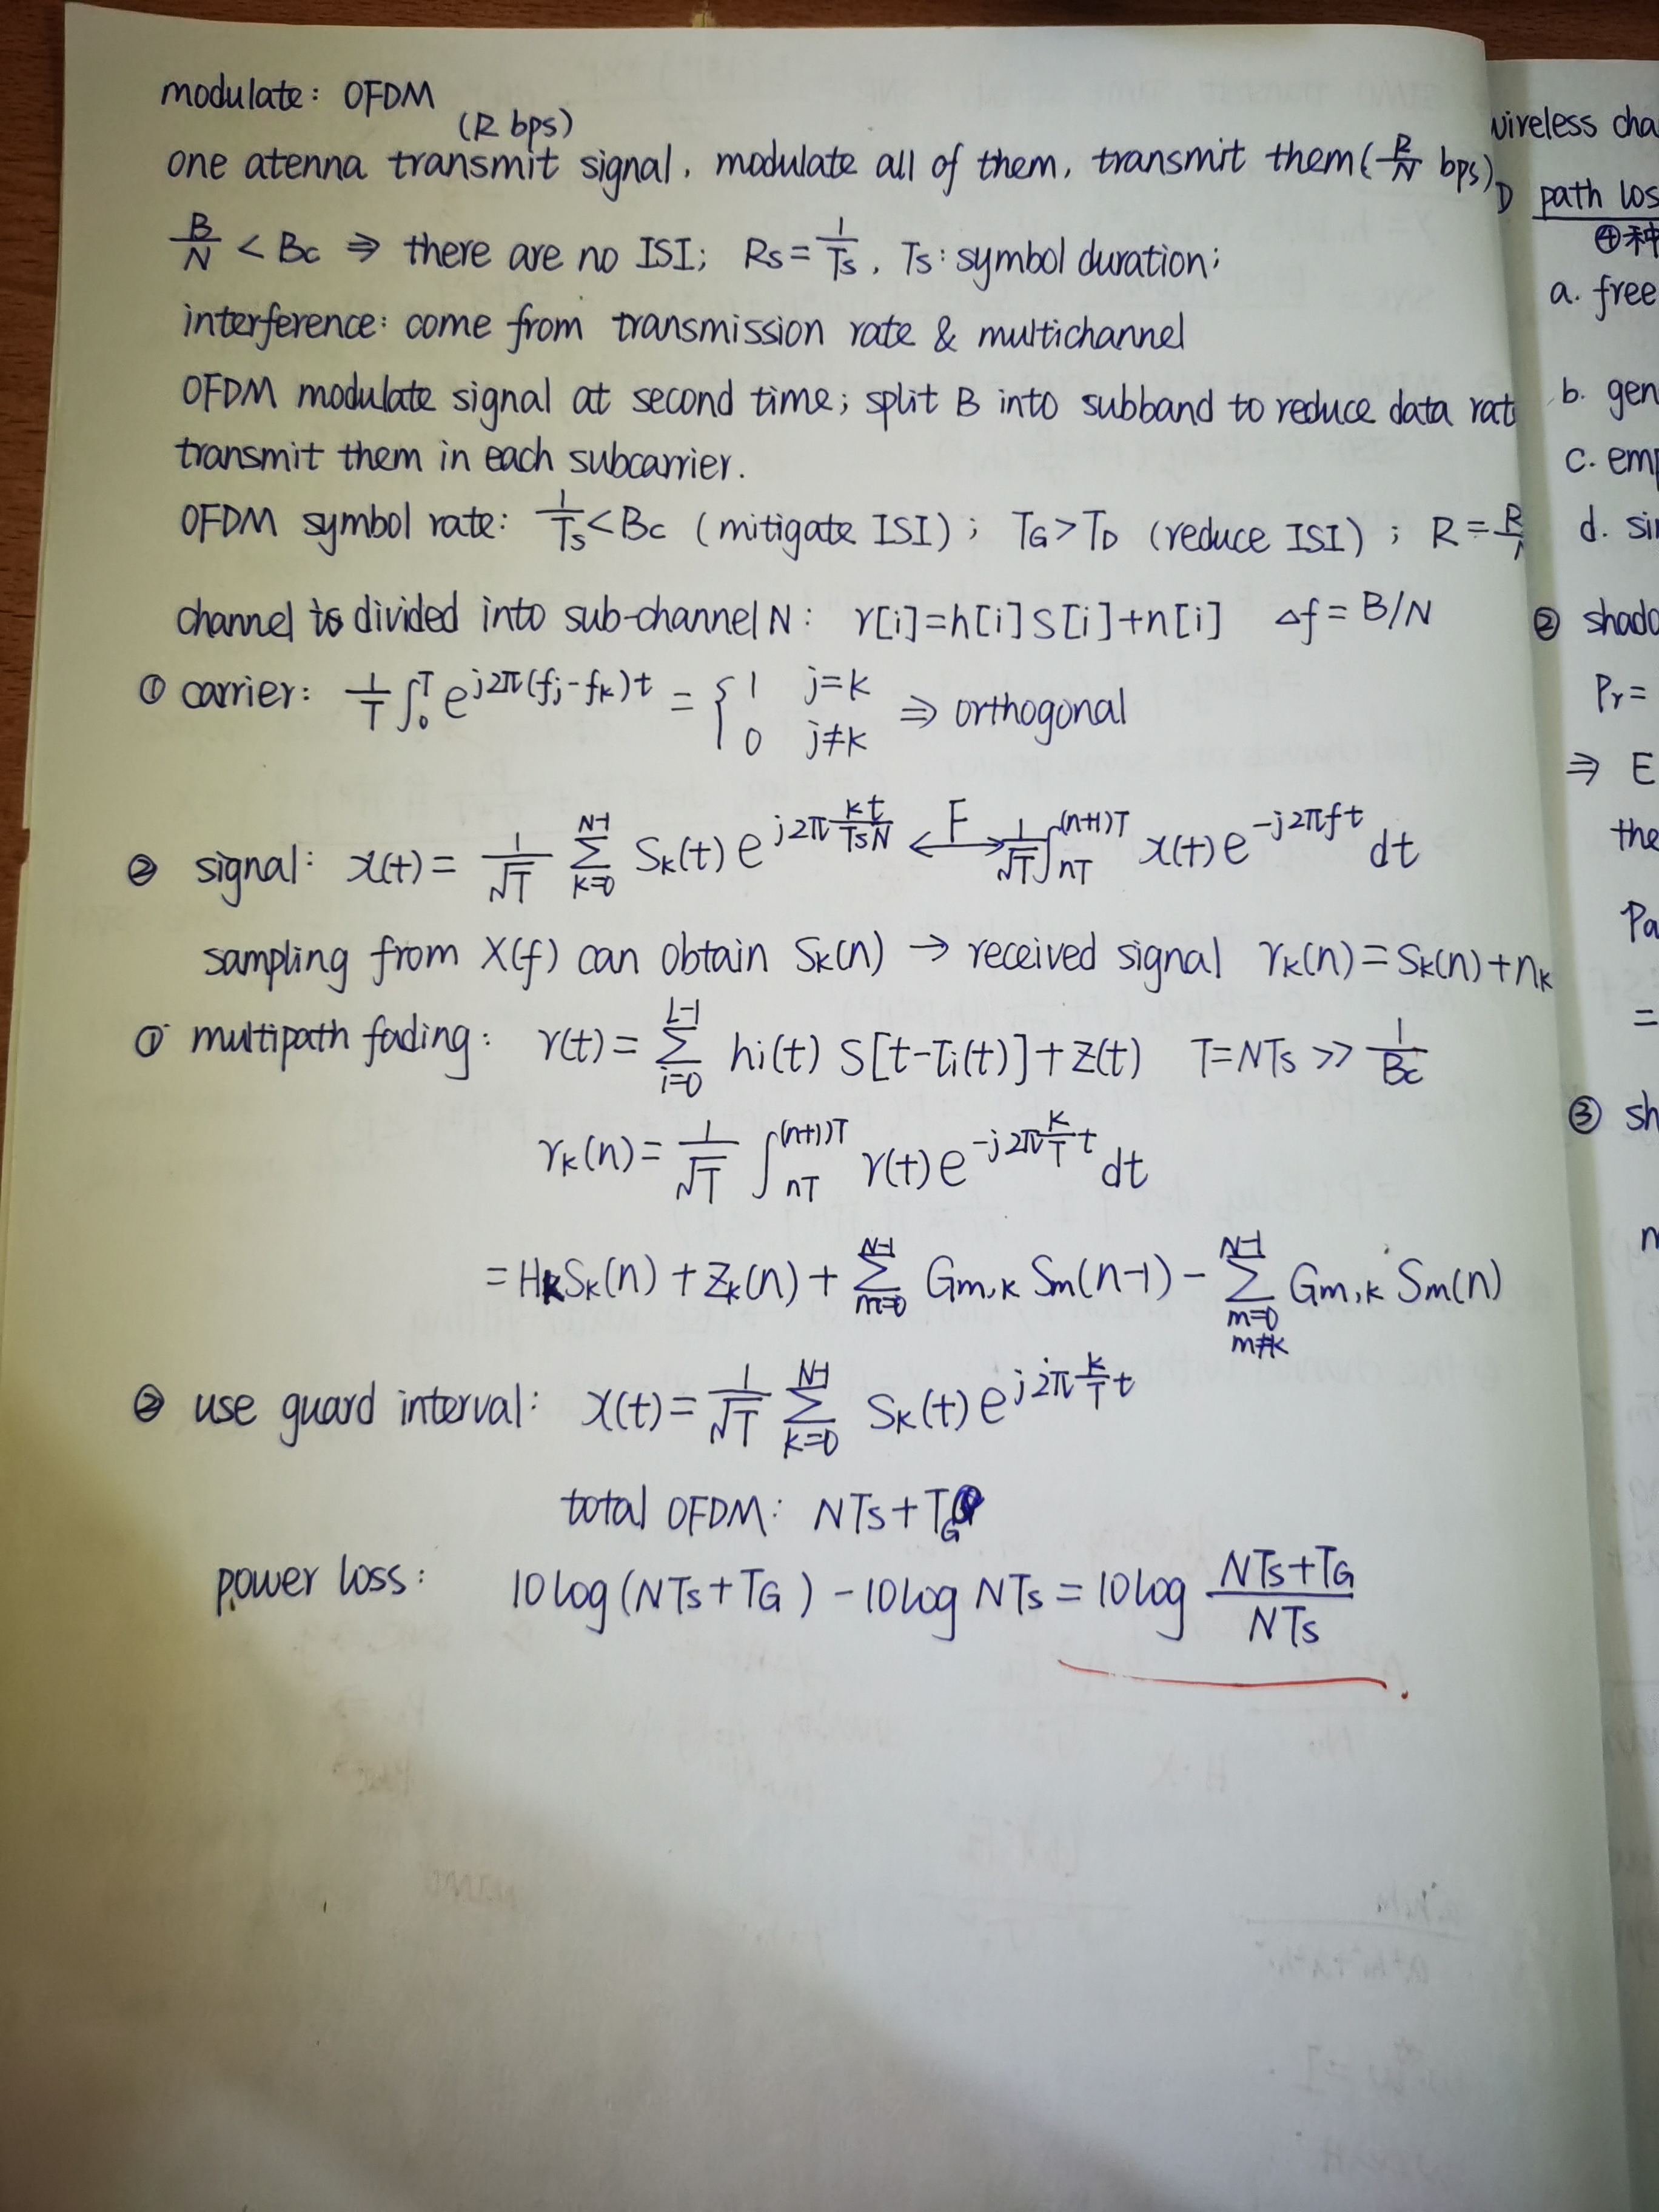 modulate: OFDM
(R bps)
one atenna transmit signal, modulate all of them, transmit them (R/N bps)
B/N < Bc ⇒ there are no ISI; Rs = 1/Ts, Ts: symbol duration;
interference: come from transmission rate & multichannel
OFDM modulate signal at second time; split B into subband to reduce data rat
transmit them in each subcarrier.
OFDM symbol rate: 1/Ts < Bc (mitigate ISI); TG > TD (reduce ISI); R = R/
channel is divided into sub-channel N: r[i]=h[i]s[i]+n[i] Δf = B/N
① carrier: 1/T ∫₀ᵀ e^{j2π(fj-fk)t} = { 1 j=k ; 0 j≠k ⇒ orthogonal
② signal: x(t) = 1/√T Σ_{k=0}^{N-1} Sk(t) e^{j2π kt/TsN} ⟷F 1/√T ∫_{nT}^{(n+1)T} x(t) e^{-j2πft} dt
sampling from X(f) can obtain Sk(n) → received signal rk(n) = Sk(n) + nk
① multipath fading: r(t) = Σ_{i=0}^{L-1} hi(t) S[t-τi(t)] + z(t) T=NTs >> 1/Bc
rk(n) = 1/√T ∫_{nT}^{(n+1)T} r(t) e^{-j2π k/T t} dt
= Hk Sk(n) + Zk(n) + Σ_{m=0}^{N-1} Gm,k Sm(n-1) - Σ_{m=0, m≠k}^{N-1} Gm,k Sm(n)
② use guard interval: x(t) = 1/√T Σ_{k=0}^{N-1} Sk(t) e^{j2π k/T t}
total OFDM: NTs + TG
power loss: 10log(NTs+TG) - 10log NTs = 10log (NTs+TG)/NTs
wireless cha
① path los
④种
a. free
b. gen
c. emp
d. sir
② shado
Pr =
⇒ E
the
Pa
=
③ sh